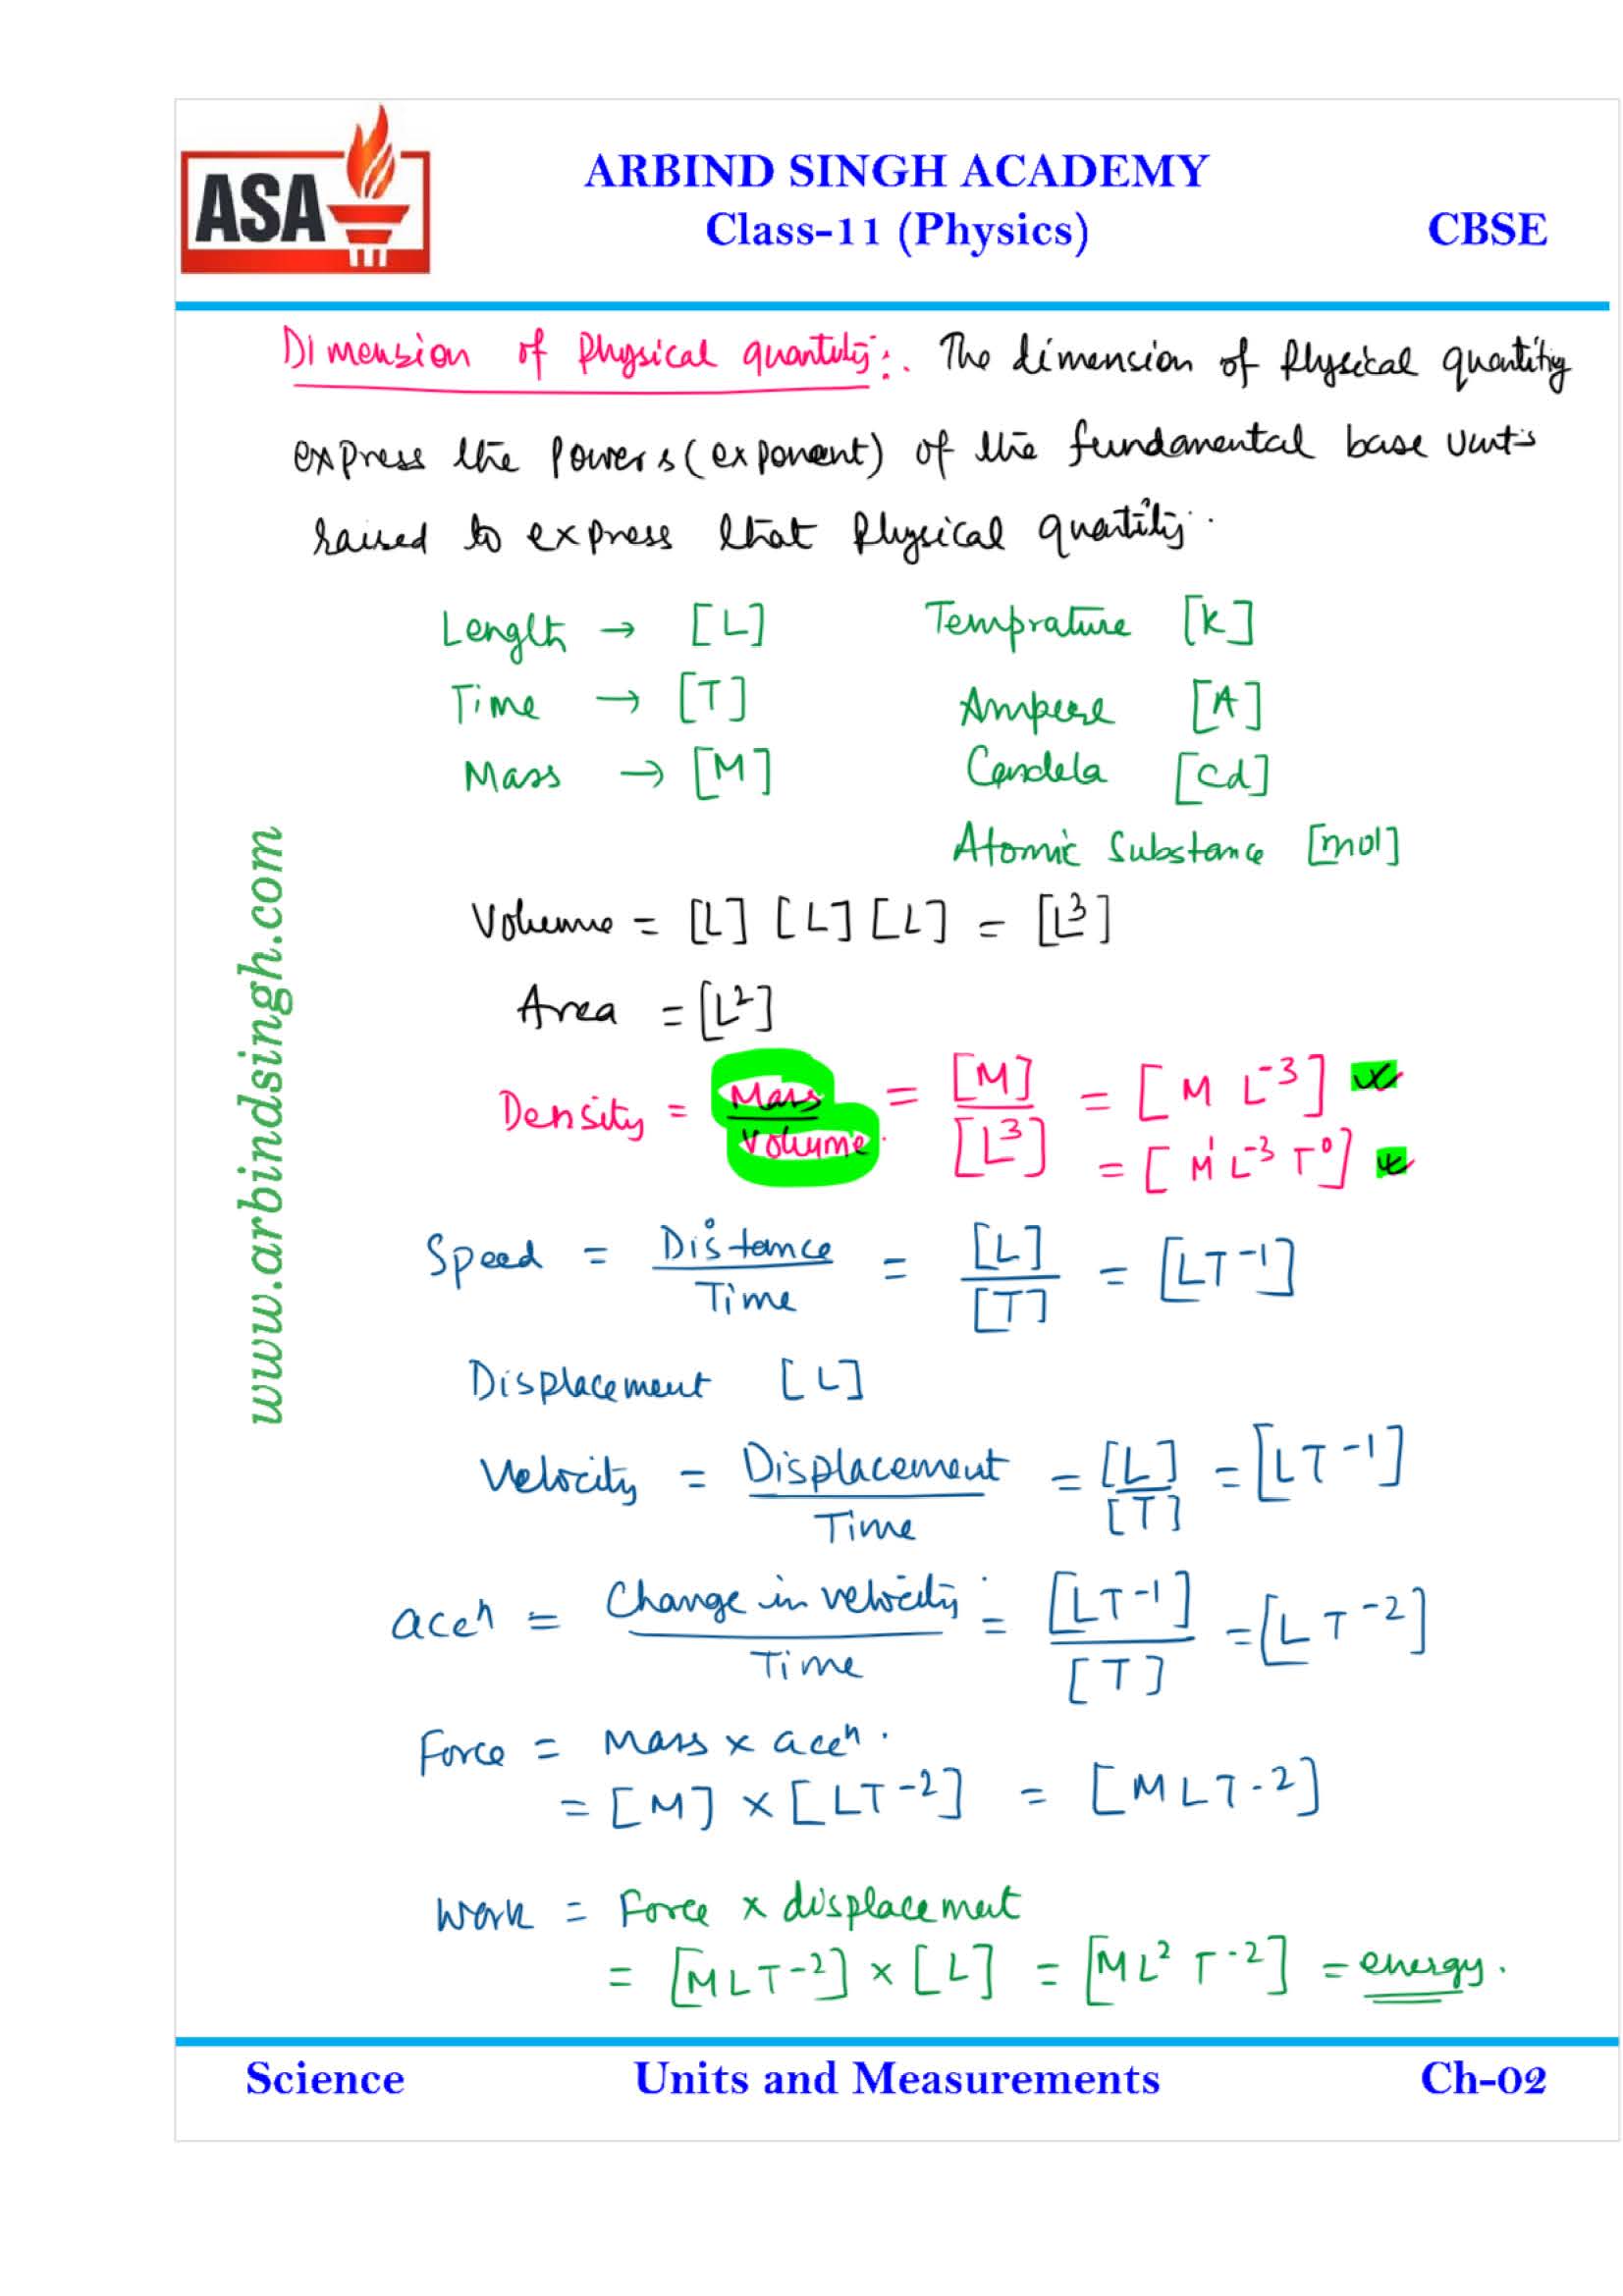 ASA
ARBIND SINGH ACADEMY
Class-11 (Physics)
CBSE
Dimension of Physical quantity:. The dimension of Physical quantitiy
express the Powers (exponent) of the fundamental base units
raised to express that Physical quantity.
Length → [L] Temprature [K]
Time → [T] Ampere [A]
Mass → [M] Candela [Cd]
Atomic Substance [mol]
Volume = [L] [L] [L] = [L³]
Area = [L²]
Density = Mass / Volume = [M] / [L³] = [M L⁻³]
= [M¹ L⁻³ T⁰]
Speed = Distance / Time = [L] / [T] = [LT⁻¹]
Displacement [L]
Velocity = Displacement / Time = [L] / [T] = [LT⁻¹]
aceⁿ = Change in velocity / Time = [LT⁻¹] / [T] = [LT⁻²]
Force = Mass × aceⁿ.
= [M] × [LT⁻²] = [MLT⁻²]
Work = Force × displacemet
= [MLT⁻²] × [L] = [ML² T⁻²] = energy.
www.arbindsingh.com
Science
Units and Measurements
Ch-02